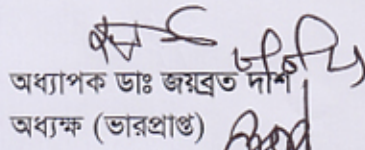 অধ্যাপক ডাঃ জয়ব্রত দাশ
অধ্যক্ষ (ভারপ্রাপ্ত)